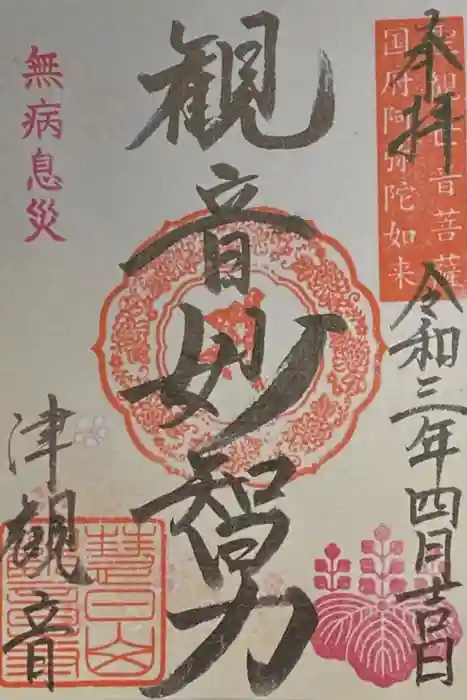 奉拝
聖観世音菩薩
国府阿弥陀如来
令和三年四月吉日
観音妙智力
無病息災
津観音
慧日山